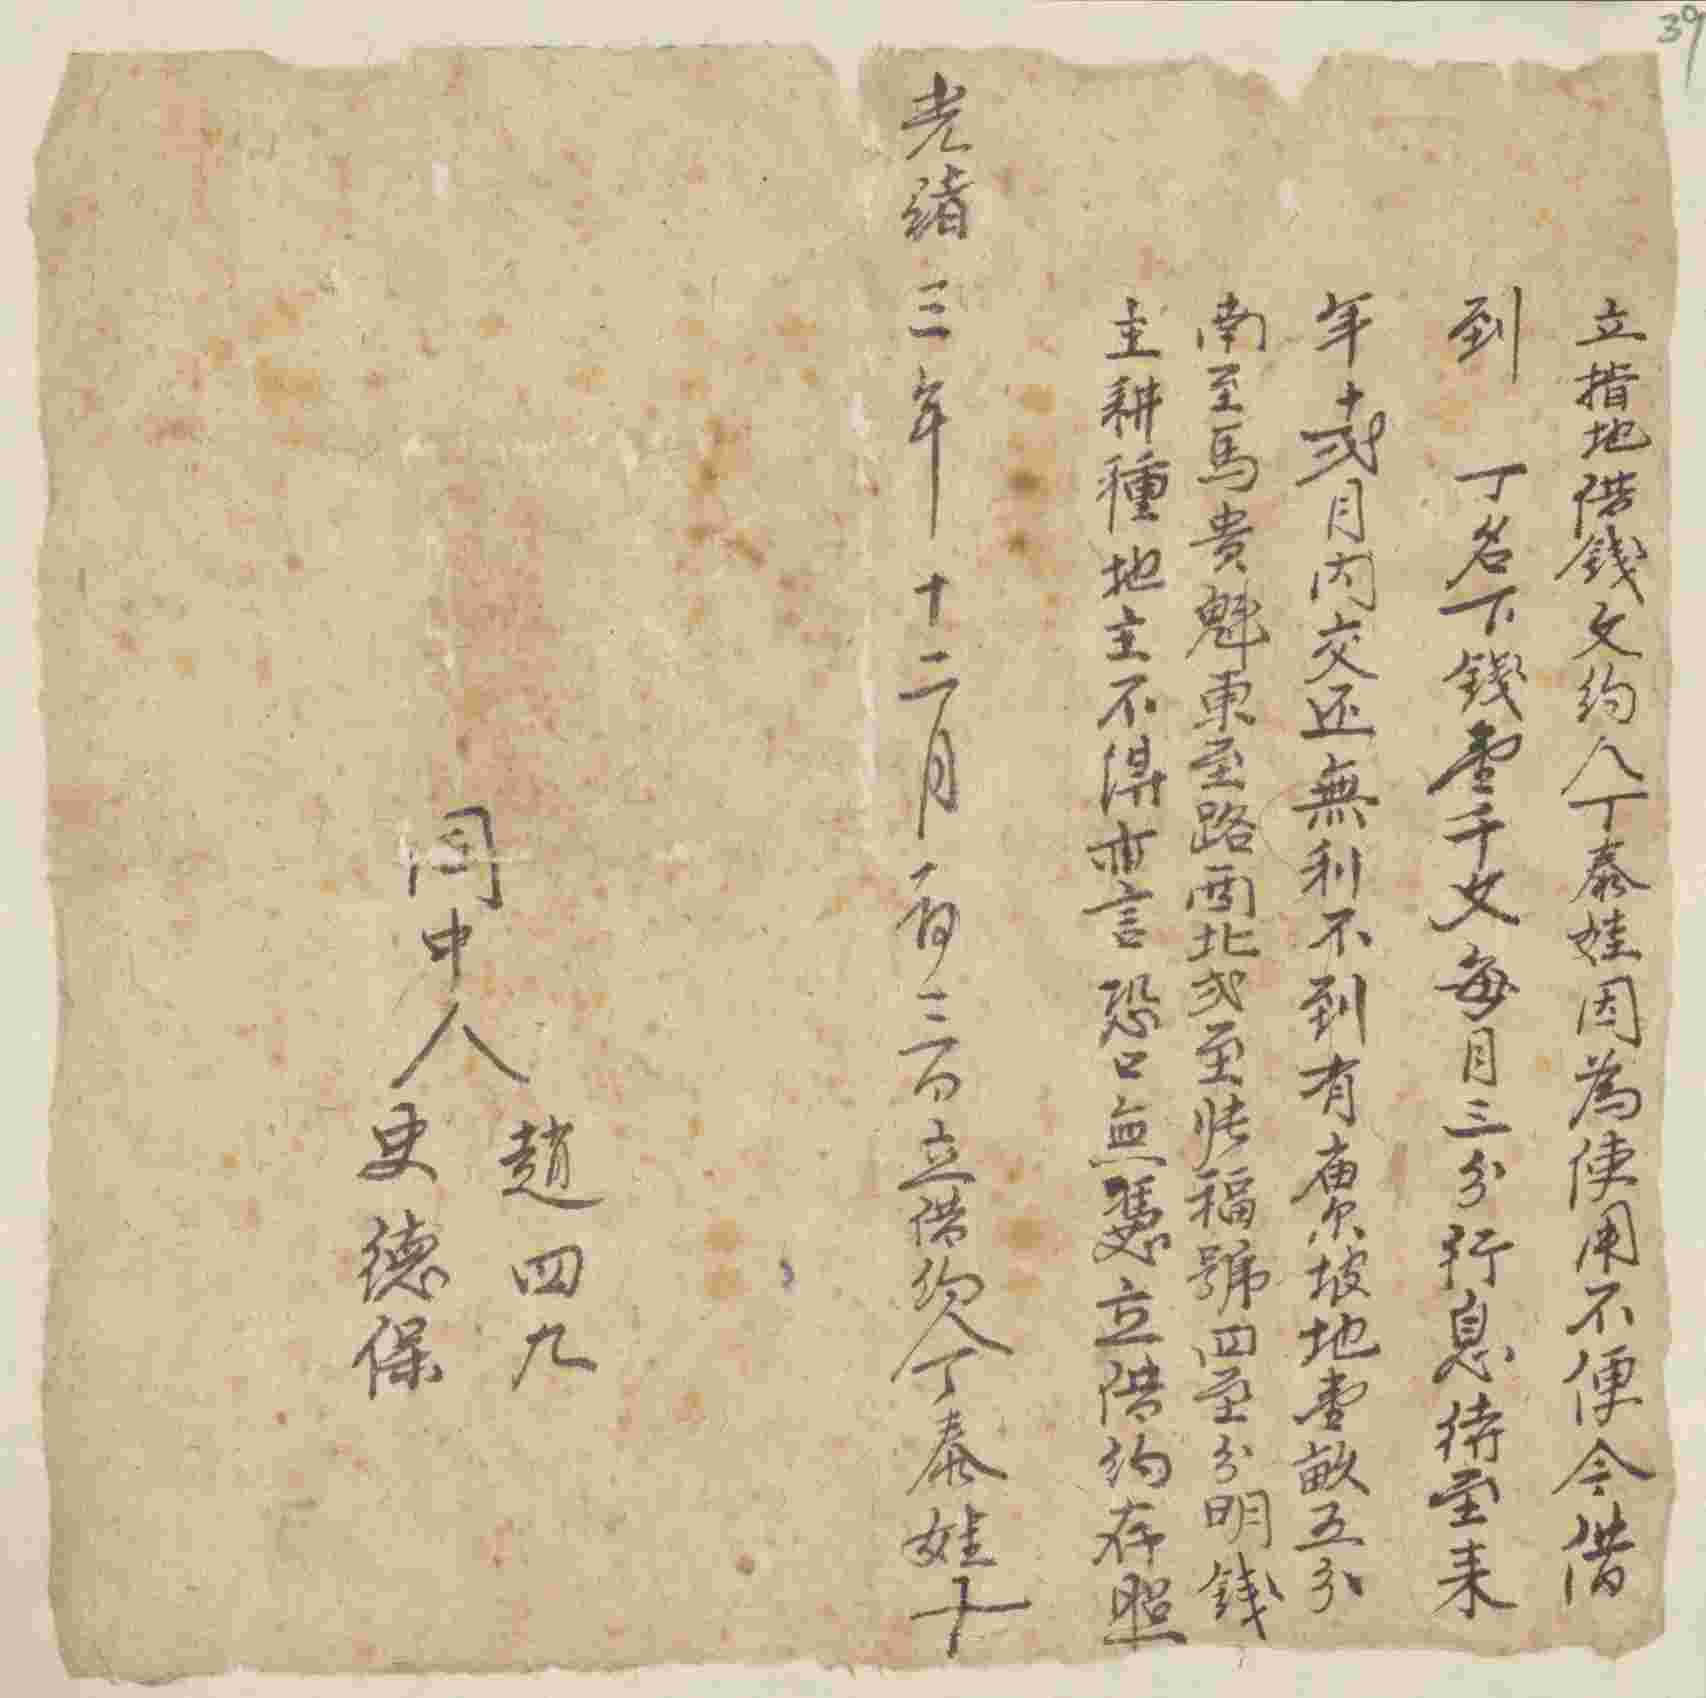 39
立指地借錢文約人丁泰娃因為使用不便今借
到 丁名下錢壹千文每月三分行息待至来
年十弍月内交还無利不到有廟坡地壹畝五分
南至馬貴魁東至路西北弍至張福號四至分明錢
主耕種地主不得亦言恐口無憑立借約存照
光緒三年十二月 立借約人丁泰娃十
同中人
趙四九
史德保